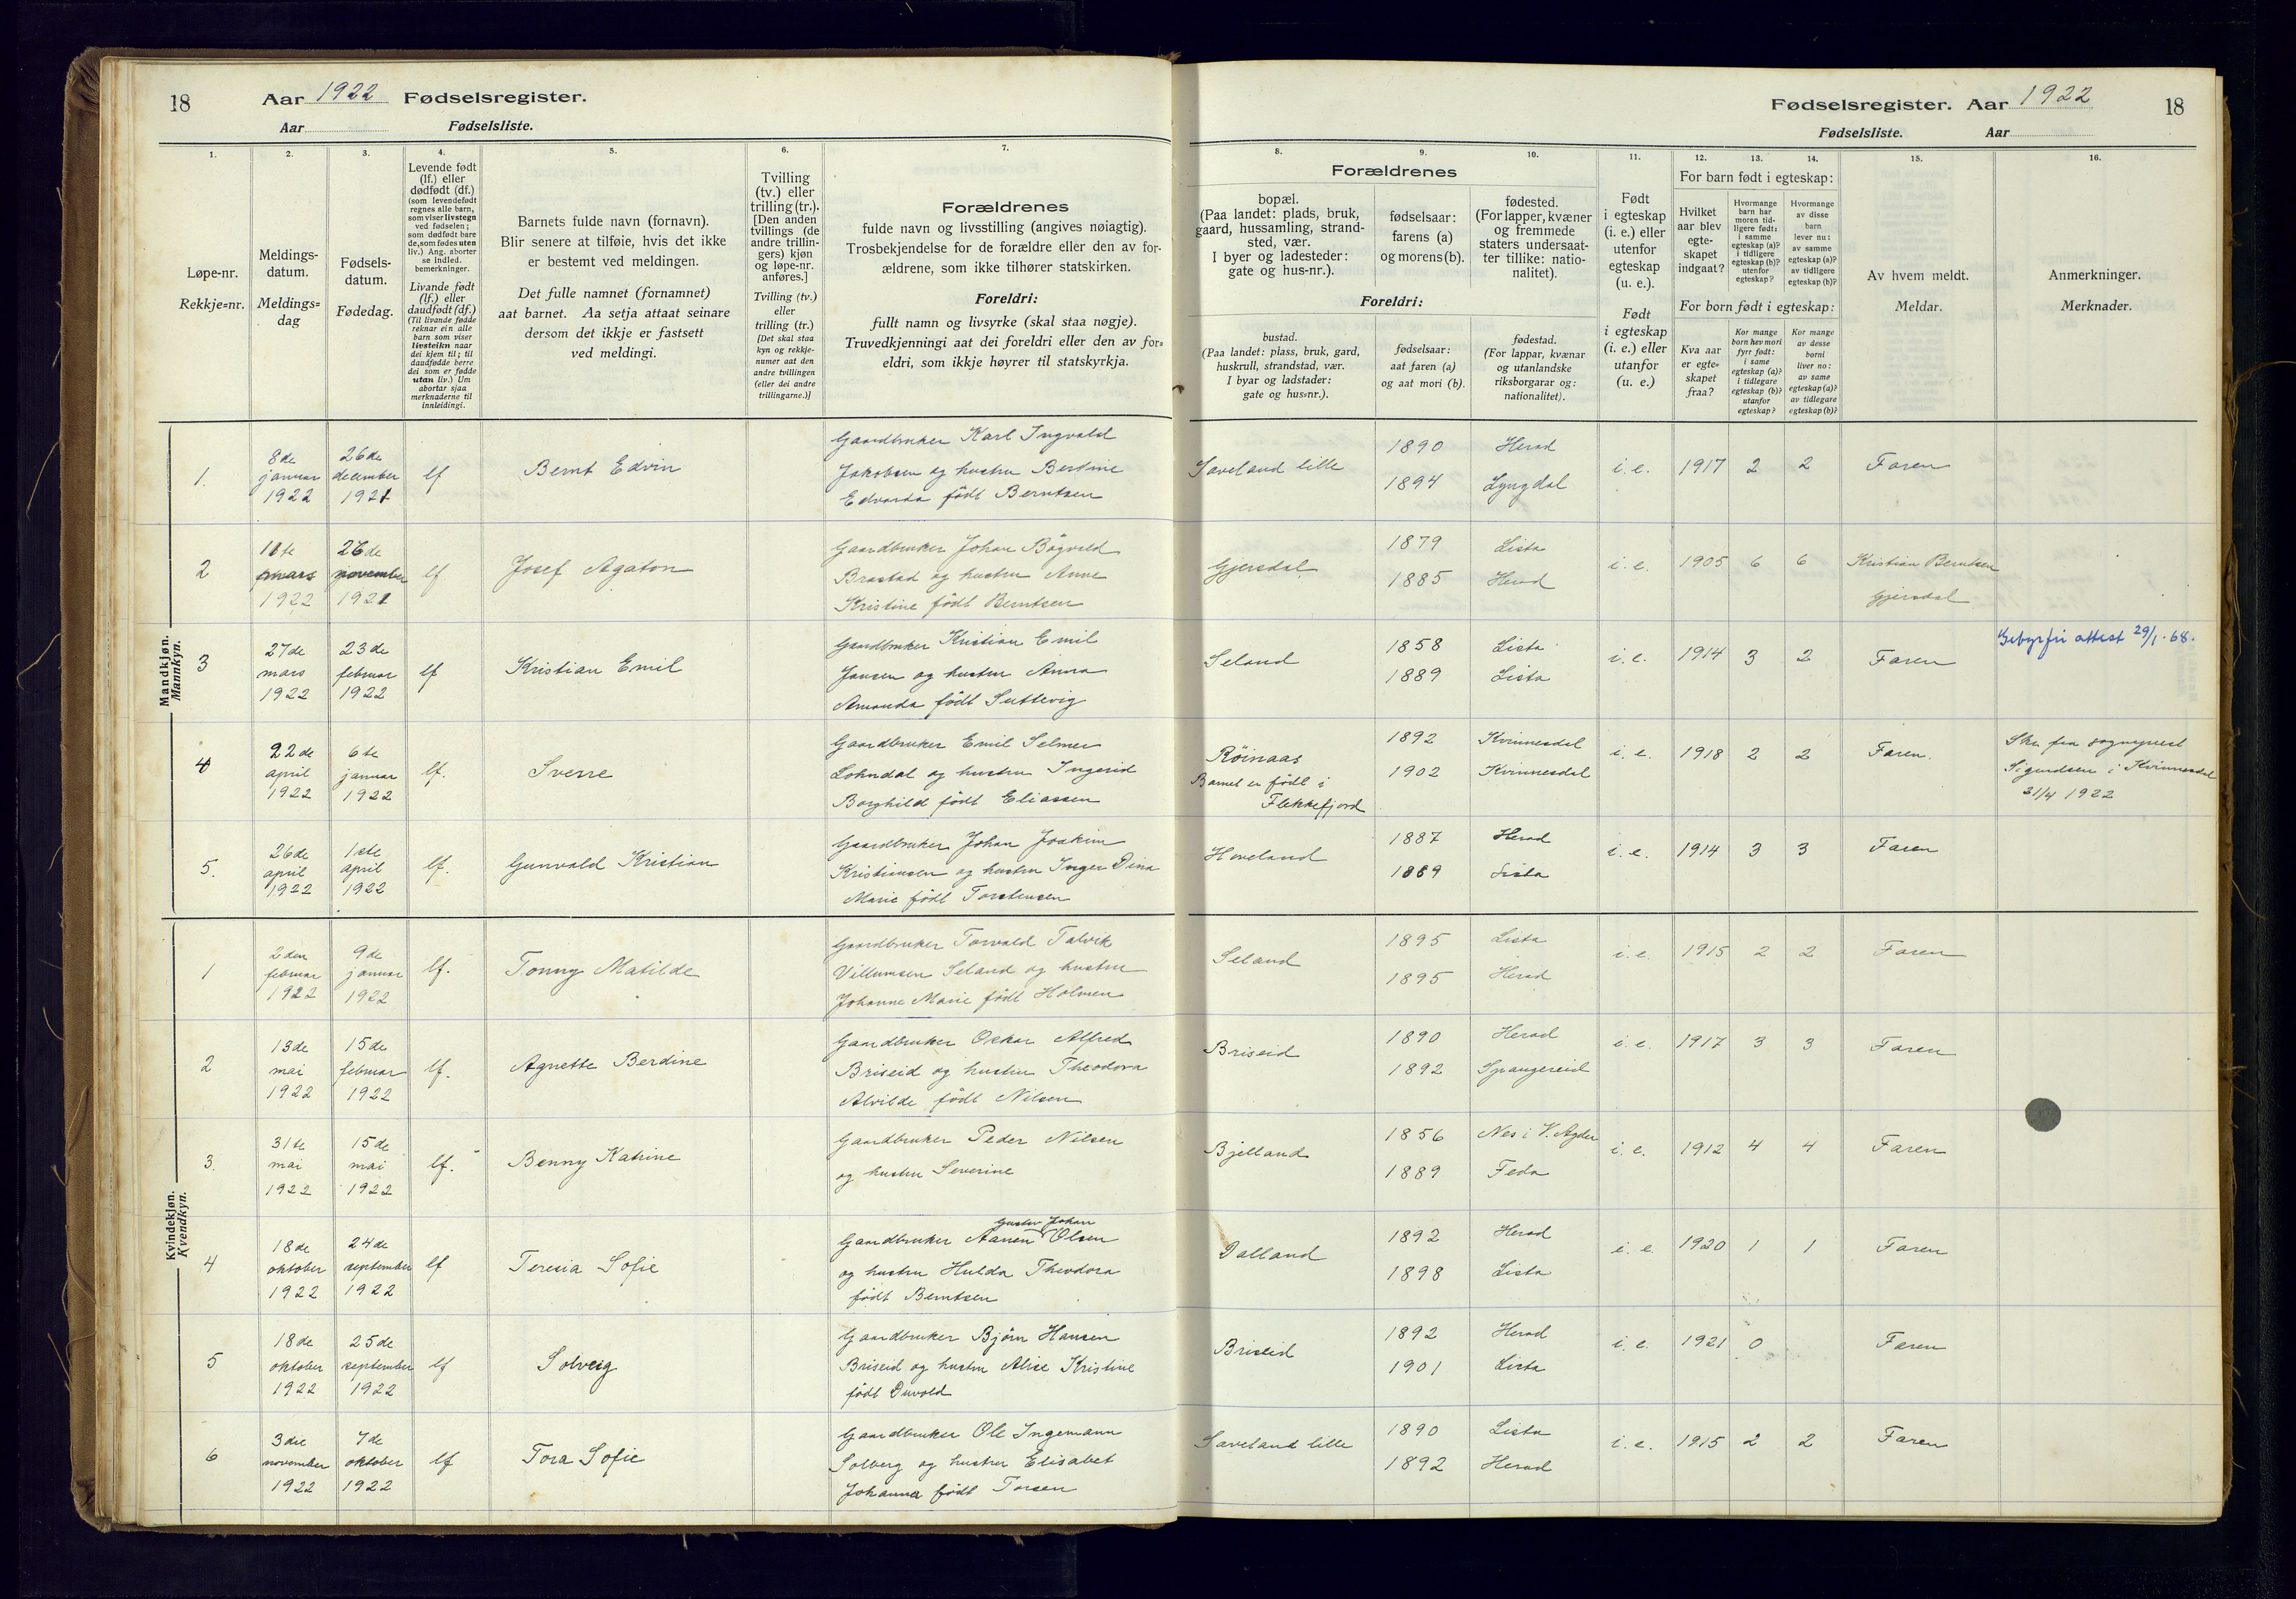 18
Aar 1922 Fødselsregister.
Aar Fødselsliste.
Fødselsregister. Aar 1922
18
Fødselsliste. Aar
1. 2. 3. 4. 5. 6. 7. 8. 9. 10. 11. 12. 13. 14. 15. 16.
Løpe-nr.
Rekkje=nr.
Meldings-
datum.
Meldings=
dag
Fødsels-
datum.
Fødedag.
Levende født
(lf.) eller
dødfødt (df.)
(som levendefødt
regnes alle barn,
som viser livstegn
ved fødselen;
som dødfødt bare
de, som fødes uten
liv.) Ang. aborter
se indled.
bemerkninger.
Livande født
(lf.) eller
daudfødt (df.)
(Til livande fødde
reknar ein alle
barn som viser
livsteikn naar
dei kjem til; til
daudfødde berre
dei som er fødde
utan liv.) Um
abortar sjaa
merknaderne til
innleidingi.
Barnets fulde navn (fornavn).
Blir senere at tilføie, hvis det ikke
er bestemt ved meldingen.
Det fulle namnet (fornamnet)
aat barnet. Aa setja attaat seinare
dersom det ikkje er fastsett
ved meldingi.
Tvilling
(tv.) eller
trilling (tr.).
[Den anden
tvillings (de
andre trillin-
gers) kjøn
og løpe-nr.
anføres.]
Tvilling (tv.)
eller
trilling (tr.)
[Det skal staa
kyn og rekkje-
numer aat den
andre tvillingen
(eller dei andre
trillingarne.)]
Forældrenes
fulde navn og livsstilling (angives nøiagtig).
Trosbekjendelse for de forældre eller den av for-
ældrene, som ikke tilhører statskirken.
Foreldri:
fullt namn og livsyrke (skal staa nøgje).
Truvedkjenningi aat dei foreldri eller den av for=
eldri, som ikkje høyrer til statskyrkja.
Forældrenes
bopæl.
(Paa landet: plads, bruk,
gaard, hussamling, strand-
sted, vær.
I byer og ladesteder:
gate og hus-nr.).
fødselsaar:
farens (a)
og morens (b).
fødested.
(For lapper, kvæner
og fremmede
staters undersaat-
ter tillike: natio-
nalitet).
Foreldri:
bustad.
(Paa landet: plass, bruk, gard,
huskrull, strandstad, vær.
I byar og ladstader:
gate og hus=nr.).
fødselsaar:
aat faren (a)
og aat mori (b).
fødestad.
(For lappar, kvænar
og utanlandske
riksborgarar og:
nationalitet).
Født
i egteskap
(i. e.) eller
utenfor
egteskap
(u. e.).
Født
i egteskap
(i. e.) eller
utanfor
(u. e.)
For barn født i egteskap:
Hvilket
aar blev
egte-
skapet
indgaat?
Hvormange
barn har
moren tid-
ligere født:
i samme
egteskap (a)?
i tidligere
egteskap (b)?
utenfor
egteskap?
Hvormange
av disse
barn
lever nu:
av samme
egteskap (a)?
av tidligere
egteskap (b)?
For born født i egteskap:
Kva aar
er egte=
skapet
fraa?
Kor mange
born hev mori
fyrr født:
i same
egteskap (a)?
i tidlegare
egteskap (b)?
utanfor
egteskap?
Kor mange
av desse
borni
liver no:
av same
egteskap (a)?
av tidlegare
egteskap (b)?
Av hvem meldt.
Meldar.
Anmerkninger.
Merknader.
Mandkjøn.
Mannkyn.
1. 8de januar 1922 26de december 1921 lf Bernt Edvin
Gaardbruker Karl Ingvald
Jakobsen og hustru Bertine
Edvarda født Berntsen
Saveland lille 1890 Herad i. e. 1917 2 2 Faren
1894 Lyngdal
2 11te mars 1922 26de november 1921 lf Josef Agaton
Gaardbruker Johan Bøgvald
Brastad og hustru Anne
Kristine født Berntsen
Gjersdal 1879 Lista i. e. 1905 6 6 Kristian Berntsen
1885 Herad Gjersdal
3 27de mars 1922 23de februar 1922 lf Kristian Emil
Gaardbruker Kristian Emil
Jansen og hustru Anna
Amanda født Suttevig
Seland 1858 Lista i. e. 1914 3 2 Faren Gebyrfri attest 29/1-68.
1889 Lista
4 22de april 1922 6te januar 1922 lf. Sverre
Gaardbruker Emil Selmer
Lohndal og hustru Ingerid
Borghild født Eliassen
Røinaas 1892 Kvinnesdal i. e. 1918 2 2 Faren.
1902 Kvinnesdal
Barnet er født i
Flekkefjord
Skr. fra sogneprest
Sigurdsen i Kvinnesdal
21/4 1922
5. 26de april 1922 1ste april 1922 lf. Gunvald Kristian
Gaardbruker Johan Joakim
Kristiansen og hustru Inger Dina
Marie født Torstensen
Hoveland 1887 Herad i. e. 1914 3 3 Faren
1889 Lista
Kvindekjøn.
Kvendkyn.
1 2den februar 1922 9de januar 1922 lf. Tonny Matilde
Gaardbruker Torvald Talvik
Villumsen Seland og hustru
Johanne Marie født Holmen
Seland 1895 Lista i. e. 1915 2 2 Faren
1895 Herad
2 13de mai 1922 15de februar 1922 lf. Agnette Berdine
Gaardbruker Oskar Alfred
Briseid og hustru Theodora
Alvilde født Nilsen
Briseid 1890 Herad i. e. 1917 3 3 Faren
1892 Spangereid
3. 31te mai 1922 15de mai 1922 lf. Benny Katrine
Gaardbruker Peder Nilsen
og hustru Severine
Bjelland 1856 Nes i V. Agder i. e. 1912 4 4 Faren
1889 Feda
4 18de oktober 1922 24de september 1922 lf Teresia Sofie
Gustav Johan
Gaardbruker Aanen Olsen
og hustru Hulda Theodora
født Berntsen
Dalland 1892 Herad i. e. 1920 1 1 Faren
1898 Lista
5 18de oktober 1922 25de september 1922 lf Solveig
Gaardbruker Bjørn Hansen
Briseid og hustru Alice Kristine
født Duvold
Briseid 1892 Herad i. e. 1921 0 Faren
1901 Lista
6 3die november 1922 7de oktober 1922 lf Tora Sofie
Gaardbruker Ole Ingemann
Solberg og hustru Elisabet
Johanna født Torsen
Saveland lille 1890 Lista i. e. 1915 2 2 Faren
1892 Herad